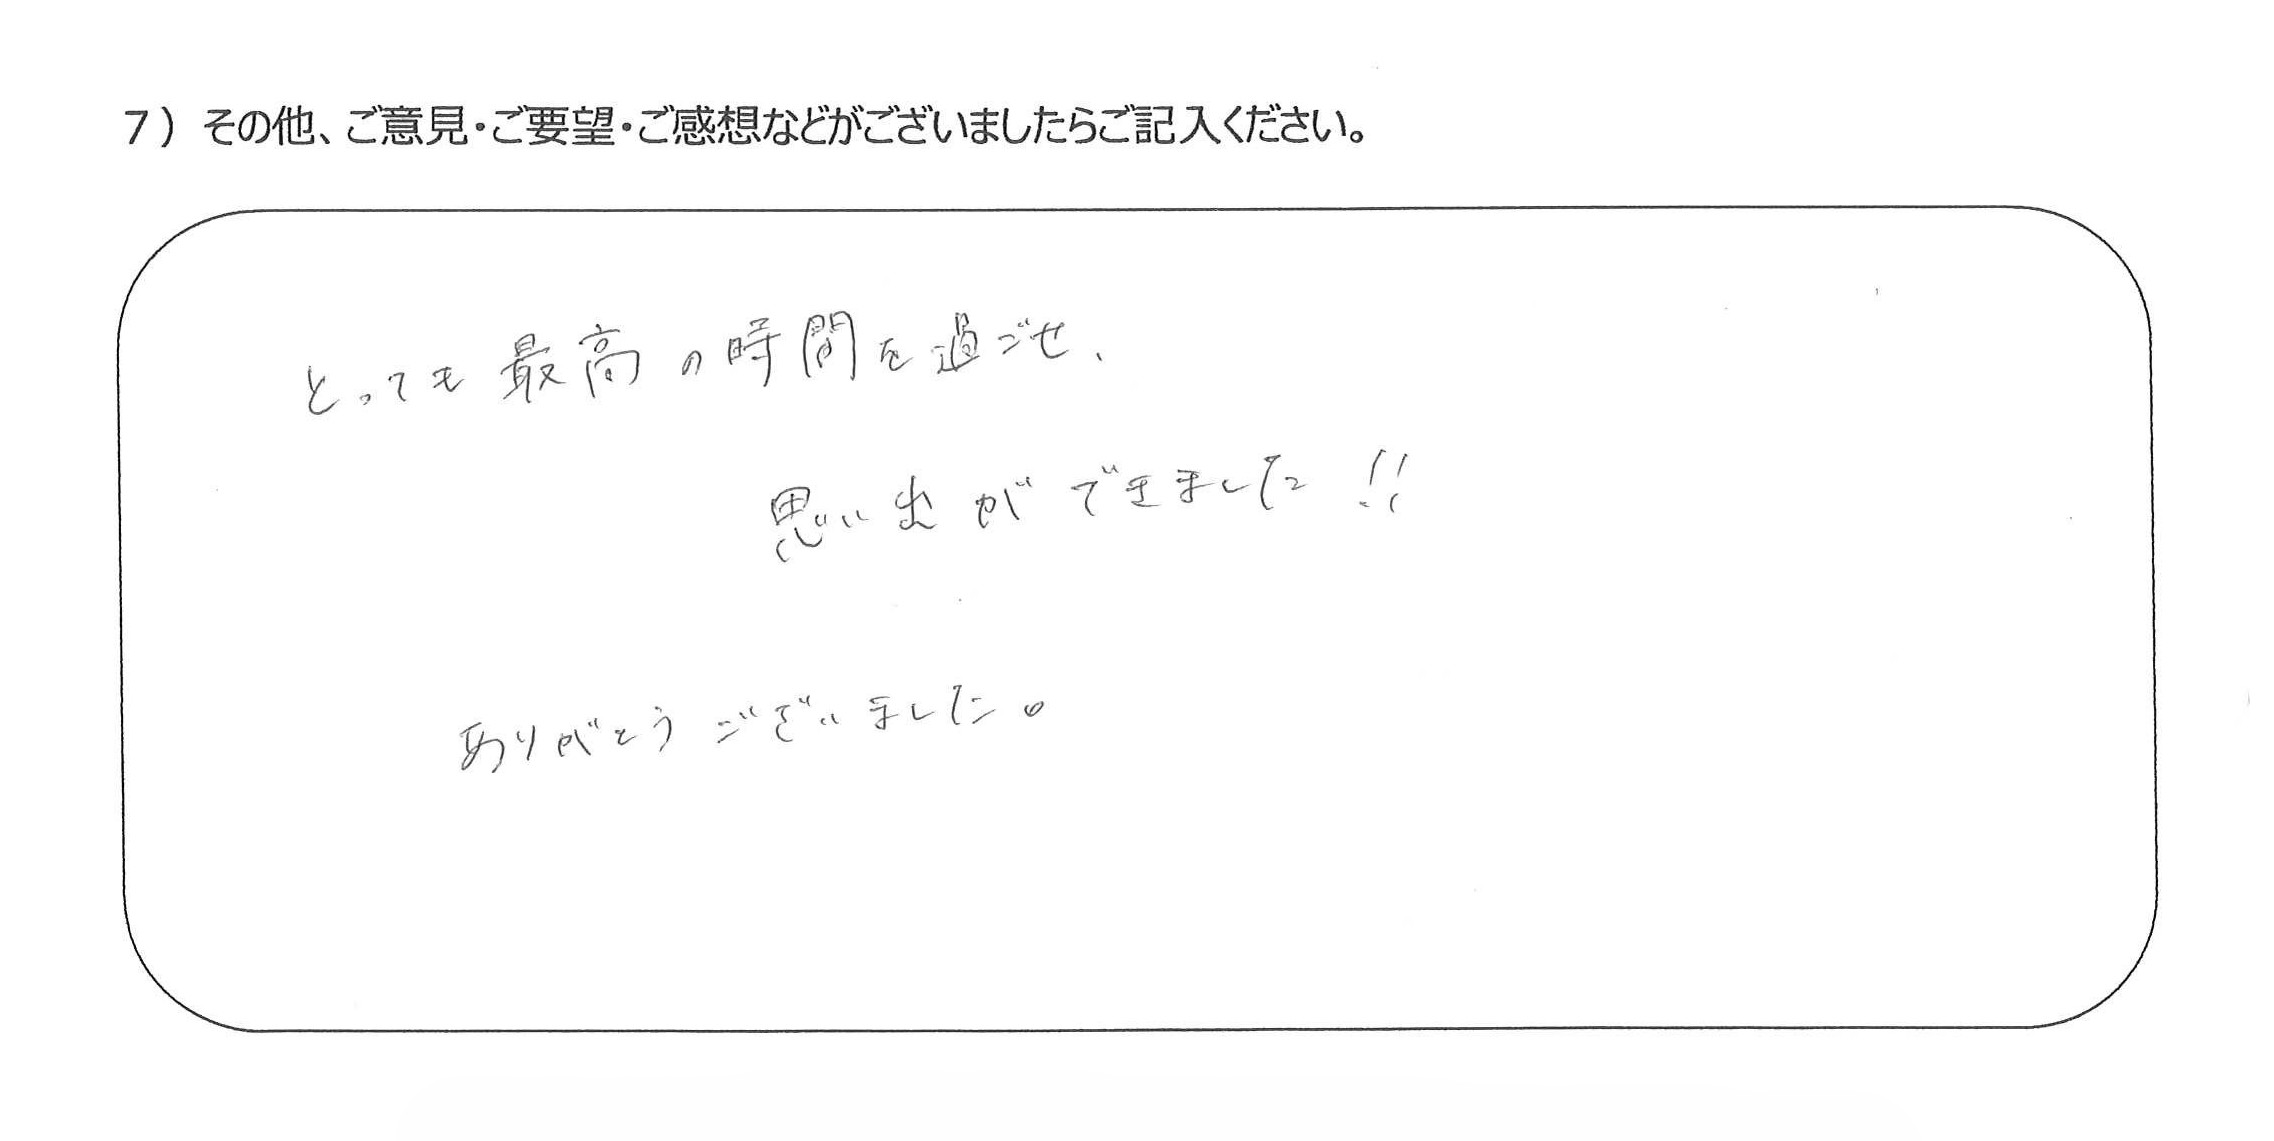 7）その他、ご意見・ご要望・ご感想などがございましたらご記入ください。
とっても最高の時間を過ごせ、
思い出ができました!!
ありがとうございました。